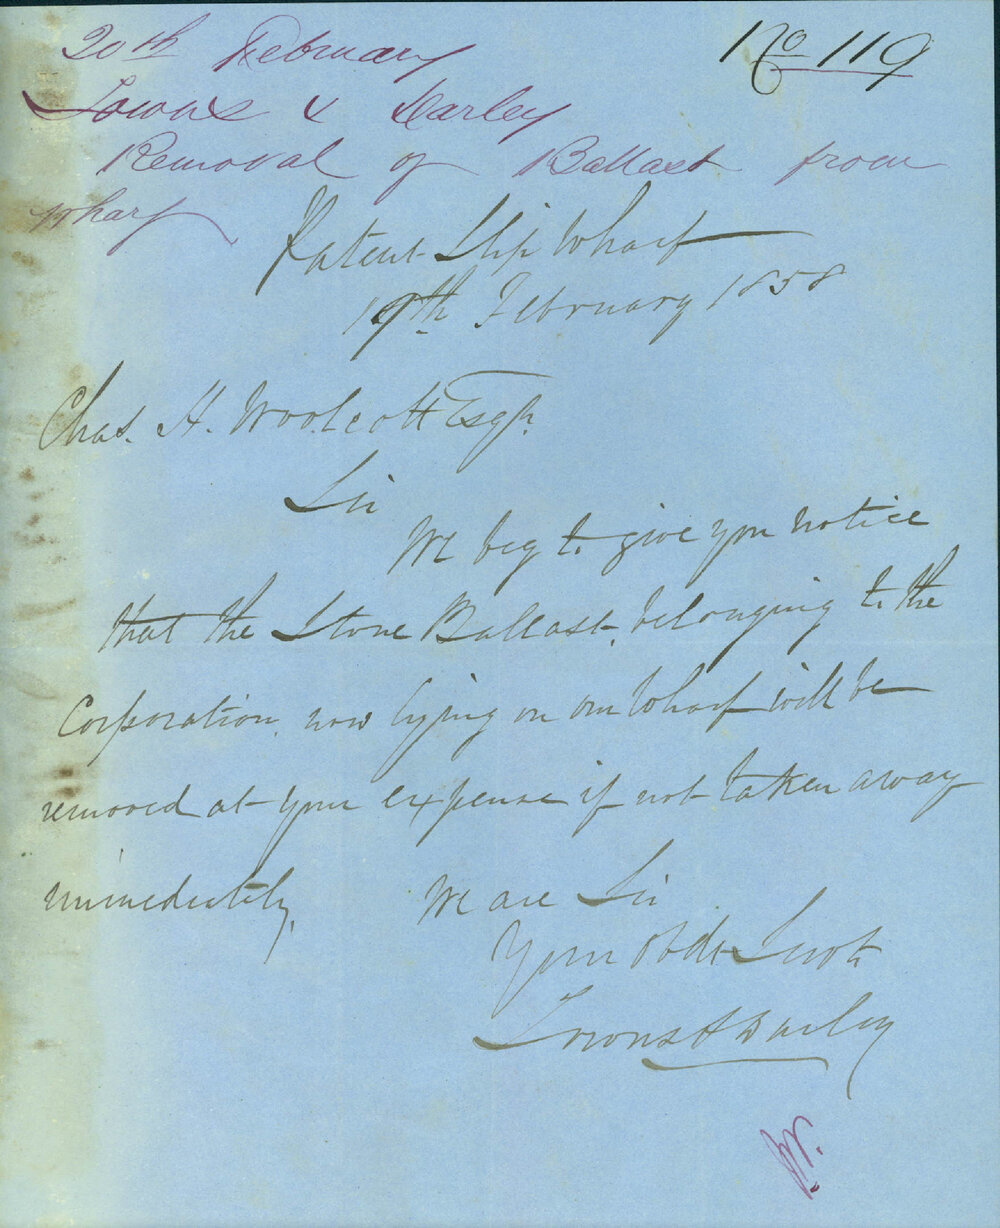 No 119
20th February
Towns & Darley
Removal of Ballast from
Wharf
Patent Slip Wharf
19th February 1858
Chas. H. Woolcott Esqr.
Sir
We beg to give you notice
that the Stone Ballast, belonging to the
Corporation, now lying on our Wharf will be
removed at your expense if not taken away
immediately.
We are Sir
Your Obdt Servts
Towns & Darley
W.